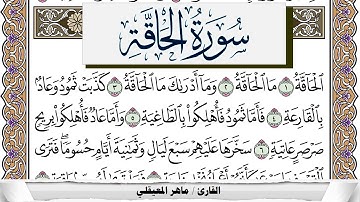 سُورَةُ الْحَاقَّةِ
الْحَاقَّةُ ١ مَا الْحَاقَّةُ ٢ وَمَا أَدْرَىٰكَ مَا الْحَاقَّةُ ٣ كَذَّبَتْ ثَمُودُ وَعَادٌۢ
بِالْقَارِعَةِ ٤ فَأَمَّا ثَمُودُ فَأُهْلِكُوا۟ بِالطَّاغِيَةِ ٥ وَأَمَّا عَادٌ فَأُهْلِكُوا۟ بِرِيحٍ
صَرْصَرٍ عَاتِيَةٍ ٦ سَخَّرَهَا عَلَيْهِمْ سَبْعَ لَيَالٍ وَثَمَٰنِيَةَ أَيَّامٍ حُسُومًا فَتَرَى
القارئ / ماهر المعيقلي